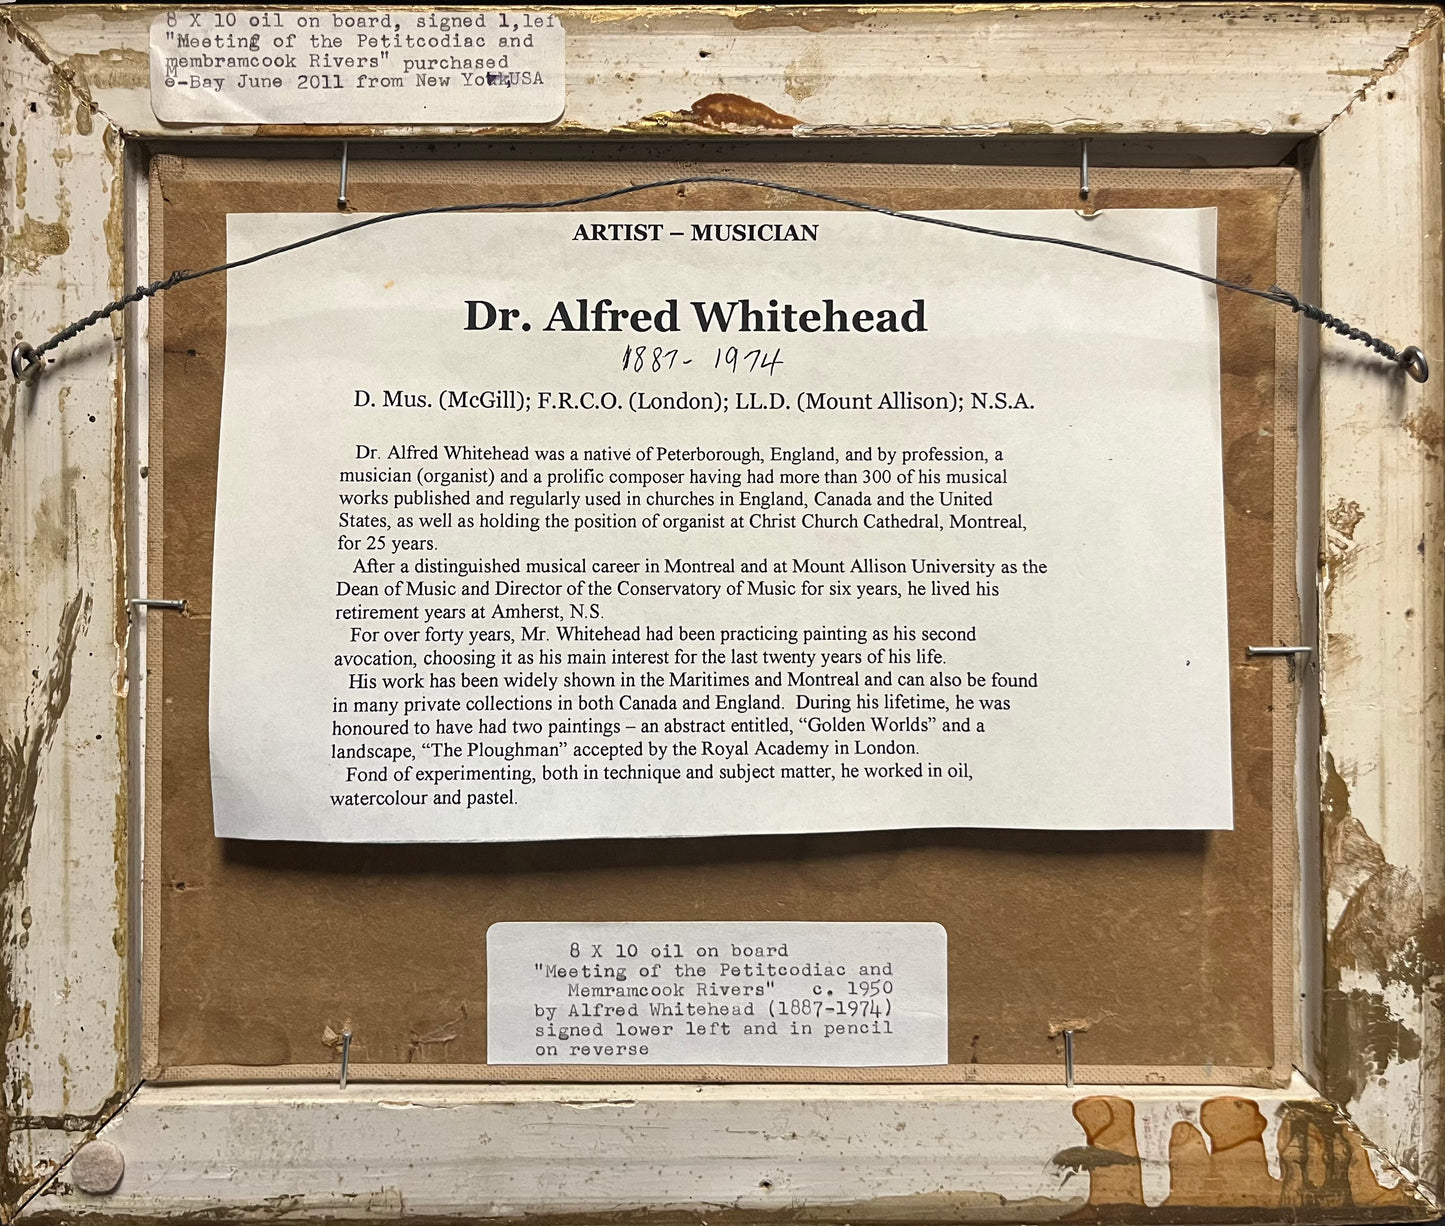 8 X 10 oil on board, signed l,lef
"Meeting of the Petitcodiac and
Membramcook Rivers" purchased
e-Bay June 2011 from New York,USA
ARTIST – MUSICIAN
Dr. Alfred Whitehead
1887- 1974
D. Mus. (McGill); F.R.C.O. (London); LL.D. (Mount Allison); N.S.A.
Dr. Alfred Whitehead was a native of Peterborough, England, and by profession, a
musician (organist) and a prolific composer having had more than 300 of his musical
works published and regularly used in churches in England, Canada and the United
States, as well as holding the position of organist at Christ Church Cathedral, Montreal,
for 25 years.
After a distinguished musical career in Montreal and at Mount Allison University as the
Dean of Music and Director of the Conservatory of Music for six years, he lived his
retirement years at Amherst, N.S.
For over forty years, Mr. Whitehead had been practicing painting as his second
avocation, choosing it as his main interest for the last twenty years of his life.
His work has been widely shown in the Maritimes and Montreal and can also be found
in many private collections in both Canada and England. During his lifetime, he was
honoured to have had two paintings – an abstract entitled, “Golden Worlds” and a
landscape, “The Ploughman” accepted by the Royal Academy in London.
Fond of experimenting, both in technique and subject matter, he worked in oil,
watercolour and pastel.
8 X 10 oil on board
"Meeting of the Petitcodiac and
Memramcook Rivers" c. 1950
by Alfred Whitehead (1887-1974)
signed lower left and in pencil
on reverse